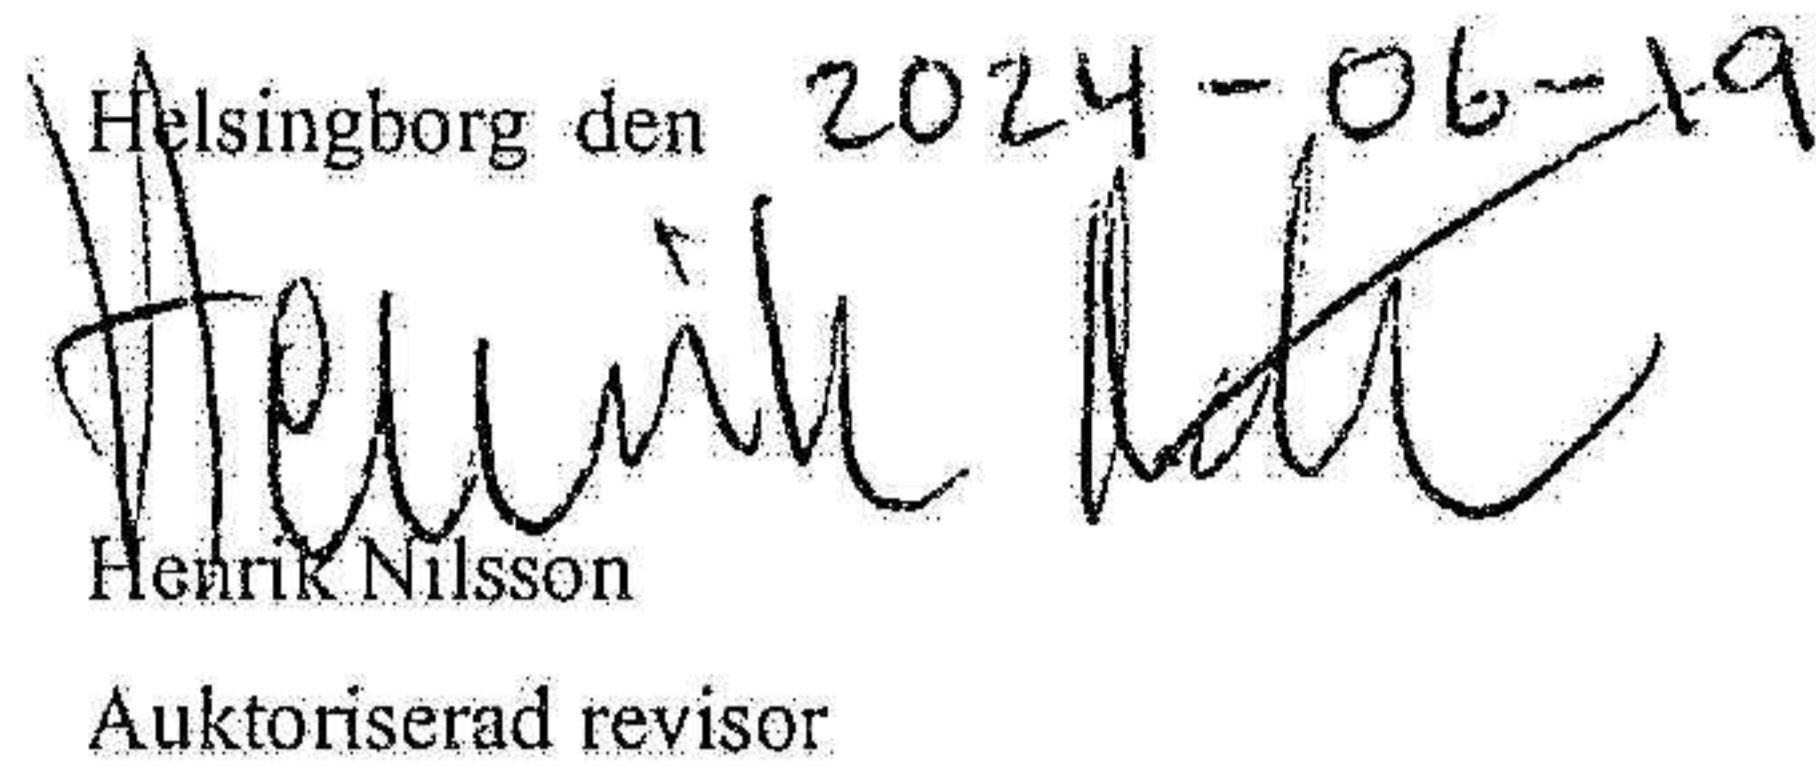 Helsingborg den 2024-06-19
Henrik
Henrik Nilsson
Auktoriserad revisor